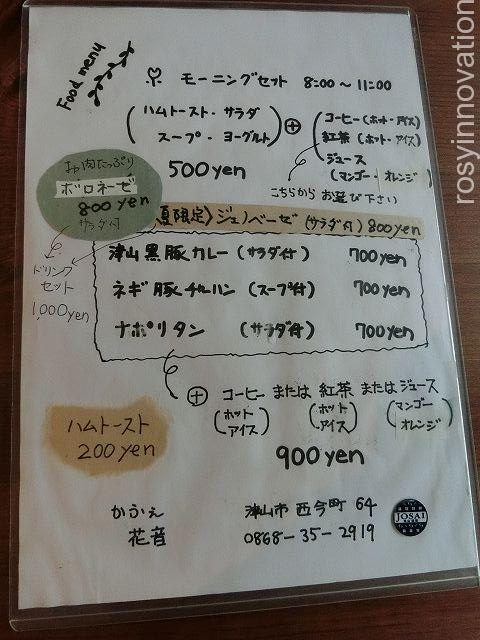 Food menu
モーニングセット 8:00～11:00
(ハムトースト・サラダ
スープ・ヨーグルト)
⊕
(コーヒー(ホット・アイス)
紅茶(ホット・アイス)
ジュース
(マンゴー・オレンジ))
500yen
こちらからお選び下さい
お肉たっぷり
ボロネーゼ
800yen
サラダ付
夏限定〉ジェノベーゼ (サラダ付) 800yen
ドリンク
セット
1,000yen
津山黒豚カレー (サラダ付) 700yen
ネギ豚チャーハン (スープ付) 700yen
ナポリタン (サラダ付) 700yen
⊕ コーヒー または 紅茶 または ジュース
(ホット
アイス)
(ホット
アイス)
(マンゴー
オレンジ)
900yen
ハムトースト
200yen
かふぇ
花音
津山市 西今町 64
0868-35-2919
JOSAI
rosyinnovation